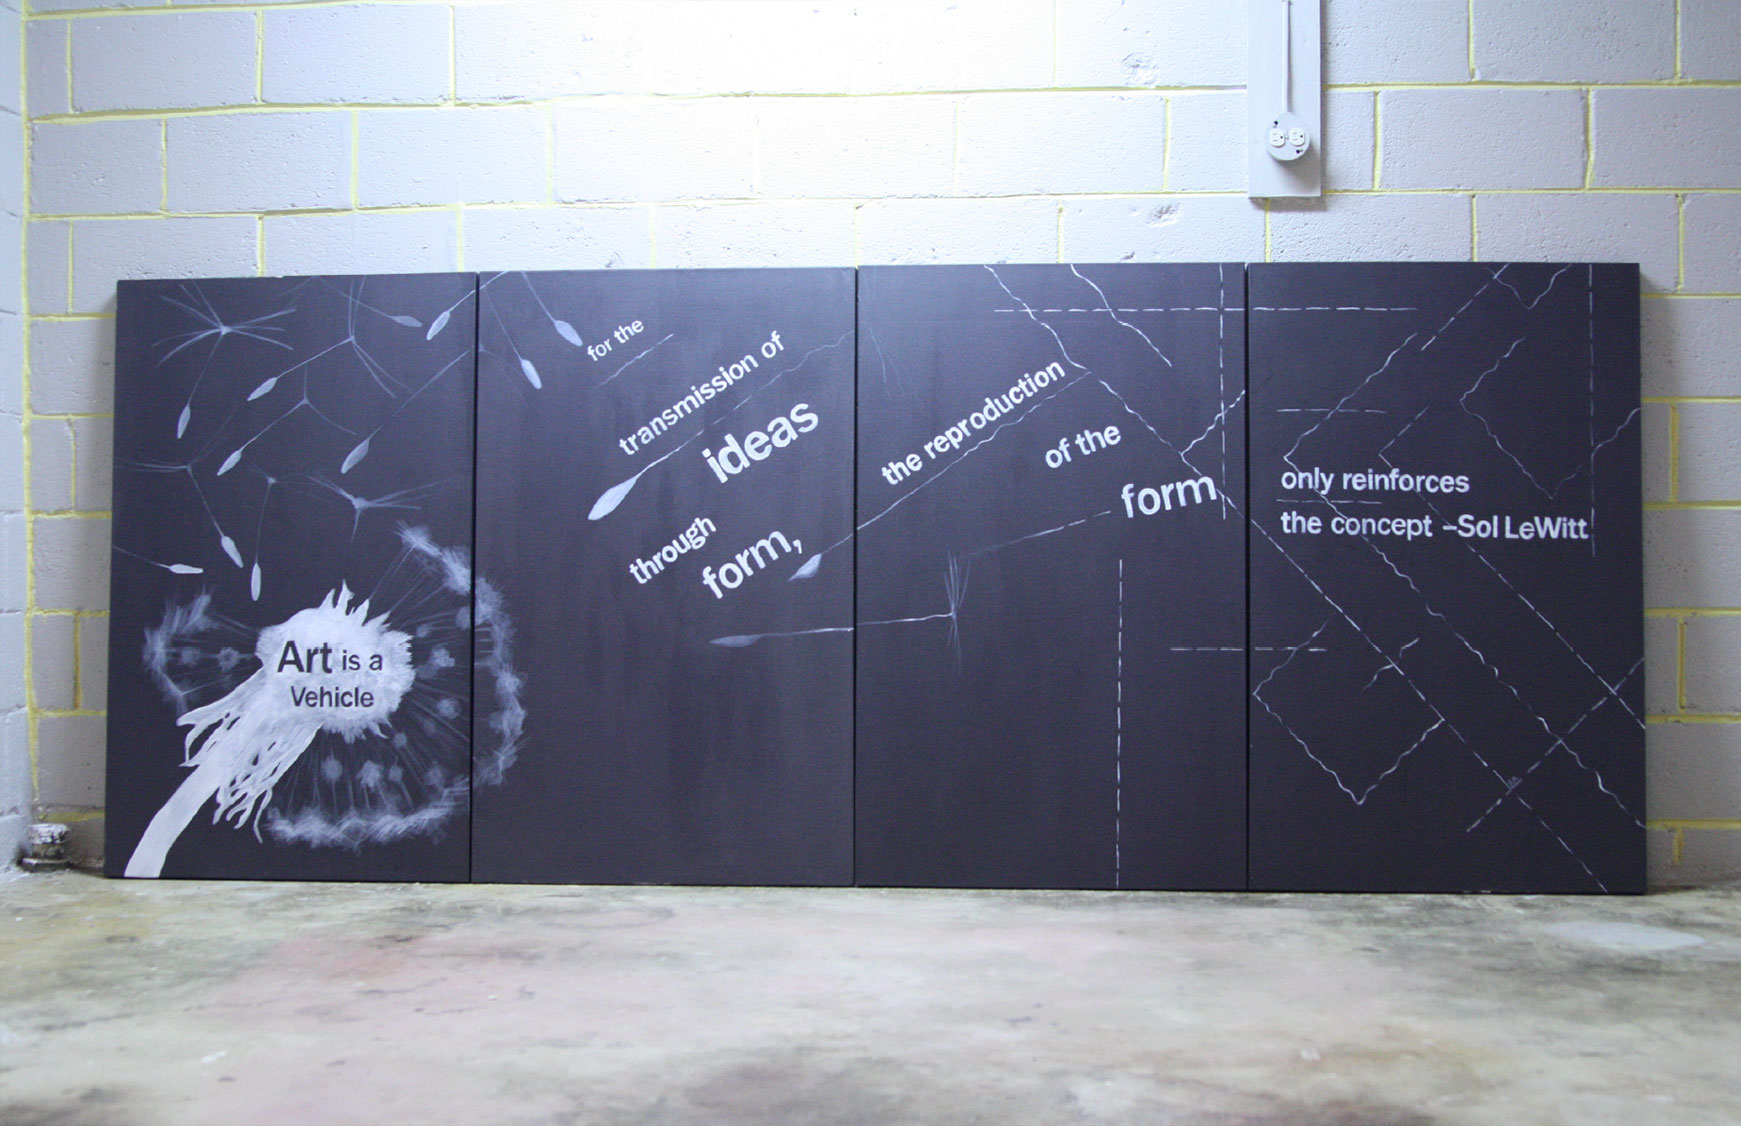 Art is a
Vehicle
for the
transmission of
ideas
through
form,
the reproduction
of the
form
only reinforces
the concept -Sol LeWitt